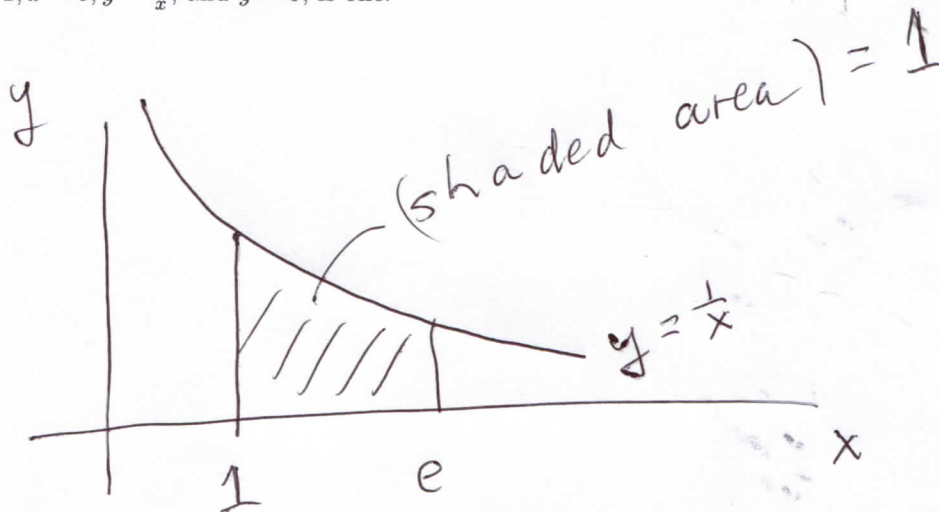 y
(shaded area) = 1
y = 1/x
1 e x